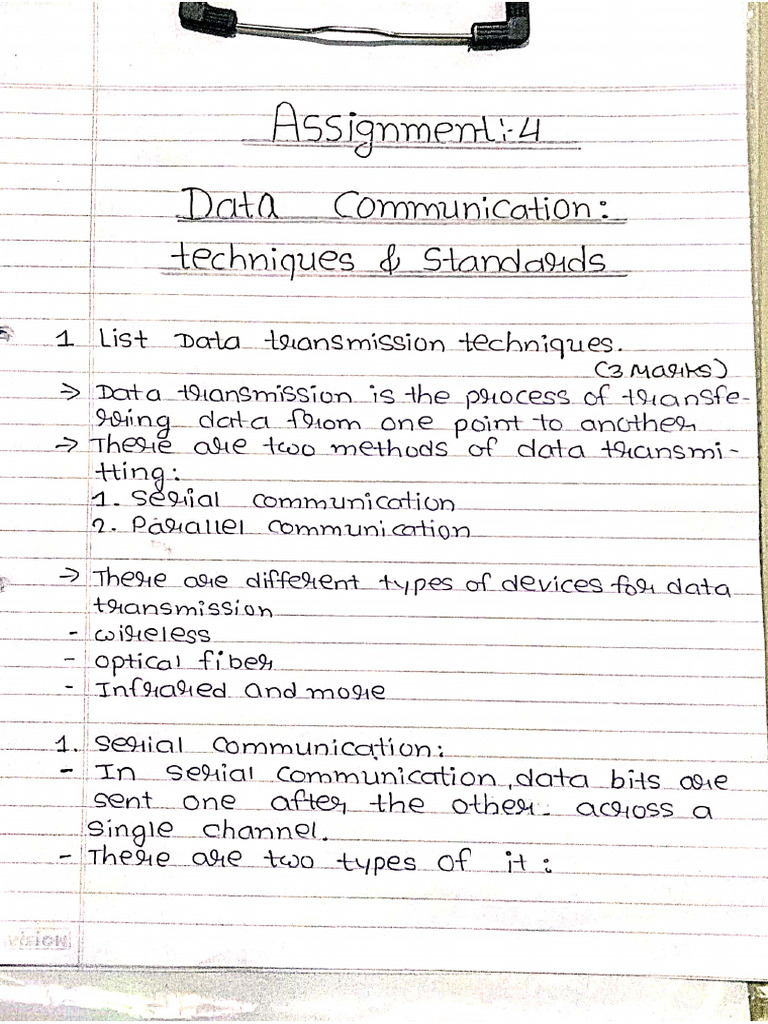 Assignment:-4
Data Communication:
techniques & Standards
1 List Data transmission techniques.
(3 Marks)
→ Data transmission is the process of transfe-
rring data from one point to another
→ There are two methods of data transmi-
tting:
1. Serial communication
2. Parallel communication
→ There are different types of devices for data
transmission
- wireless
- optical fiber
- Infrared and more
1. Serial communication:
- In serial communication, data bits are
sent one after the other. across a
single channel.
- There are two types of it:
vision